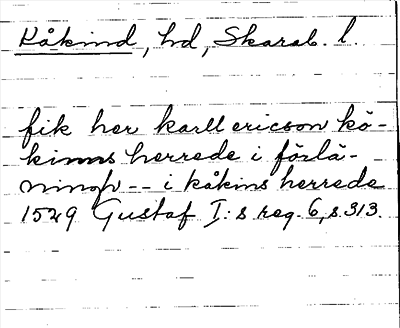 Kåkind, hd, Skarab. l.
fik her karll ericson kå-
kinns herrede i förlä-
ningh -- i kåkins herrede
1529 Gustaf I:s reg. 6, s. 313.